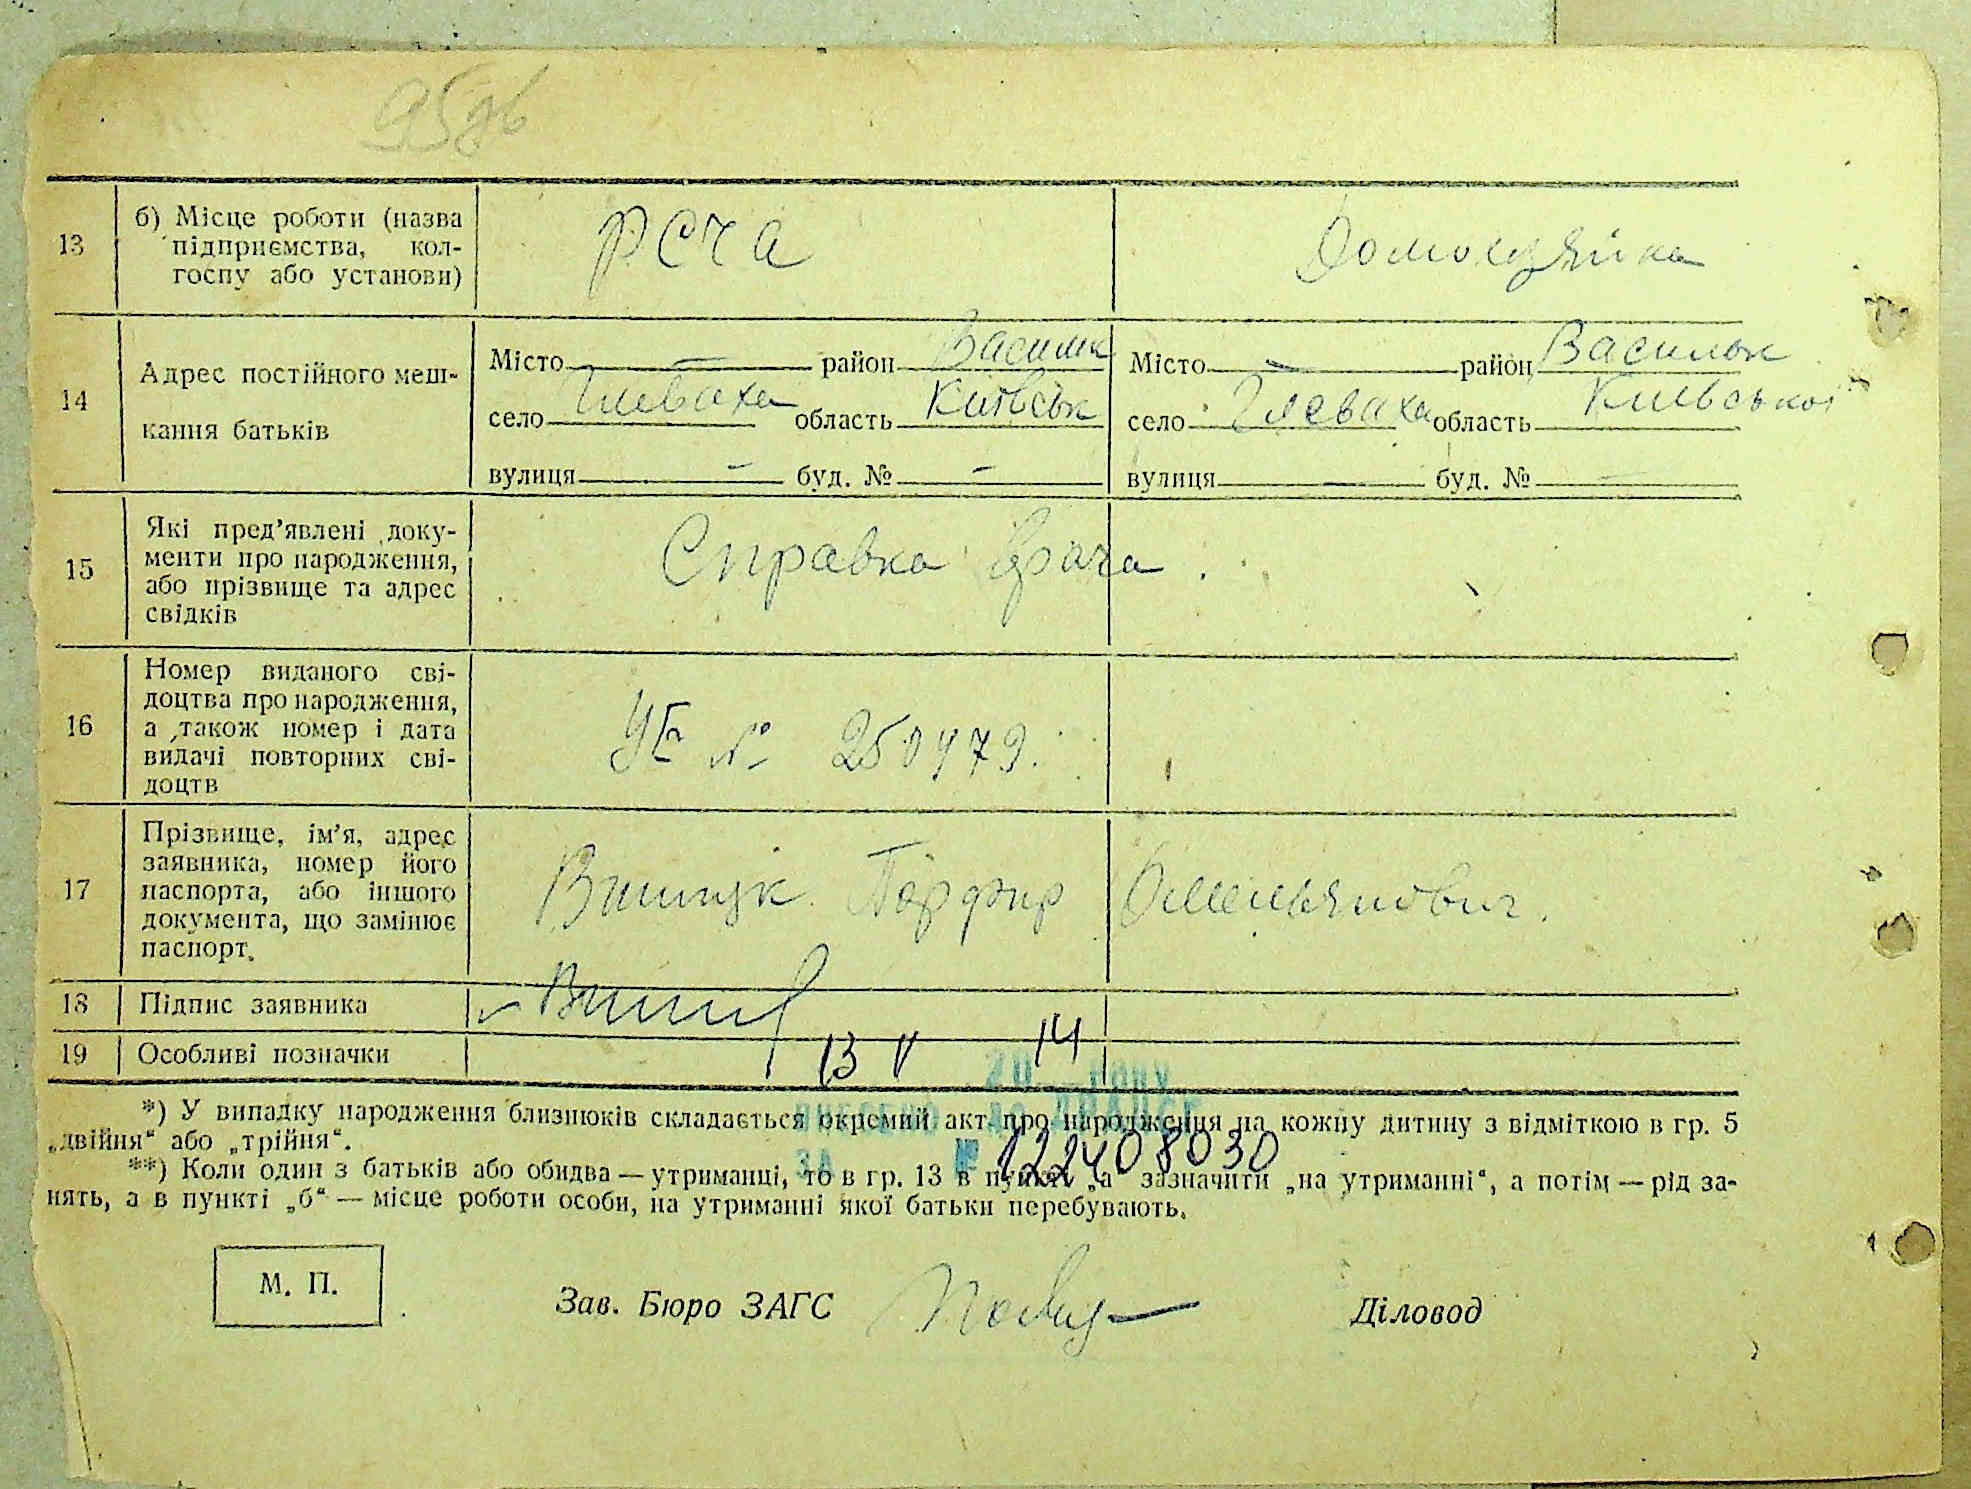 95зв
13 б) Місце роботи (назва підприємства, колгоспу або установи) РСЧА Домохозяйка
14 Адрес постійного мешкання батьків
Місто — район Васильк Місто — район Васильк
село Глеваха область Київськ село Глеваха область Київської
вулиця — буд. № — вулиця — буд. № —
15 Які пред’явлені документи про народження, або прізвище та адрес свідків Справка врача.
16 Номер виданого свідоцтва про народження, а також номер і дата видачі повторних свідоцтв УБ № 250479.
17 Прізвище, ім’я, адрес заявника, номер його паспорта, або іншого документа, що замінює паспорт. Порфир Омельянович.
18 Підпис заявника
19 Особливі позначки 13 V 14
*) У випадку народження близнюків складається окремий акт про народження на кожну дитину з відміткою в гр. 5
„двійня“ або „трійня“.
ЗА № 122408030
**) Коли один з батьків або обидва — утриманці, то в гр. 13 в пункті „а“ зазначити „на утриманні“, а потім — рід за-
нять, а в пункті „б“ — місце роботи особи, на утриманні якої батьки перебувають.
М. П.
Зав. Бюро ЗАГС
Діловод